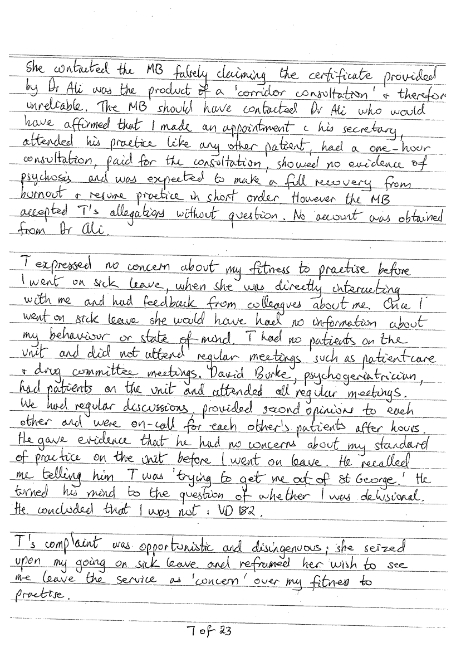 She contacted the MB falsely claiming the certificate provided
by Dr Ali was the product of a 'corridor consultation' & therefor
unreliable. The MB should have contacted Dr Ali who would
have affirmed that I made an appointment c his secretary,
attended his practice like any other patient, had a one-hour
consultation, paid for the consultation, showed no evidence of
psychosis and was expected to make a full recovery from
burnout & resume practice in short order. However the MB
accepted T's allegations without question. No account was obtained
from Dr Ali.
T expressed no concern about my fitness to practise before
I went on sick leave, when she was directly interacting
with me and had feedback from colleagues about me. Once I
went on sick leave she would have had no information about
my behaviour or state of mind. T had no patients on the
unit and did not attend regular meetings such as patient care
& drug committee meetings. David Burke, psychogeriatrician,
had patients on the unit and attended all regular meetings.
We had regular discussions, provided second opinions to each
other and were on-call for each other's patients after hours.
He gave evidence that he had no concerns about my standard
of practice on the unit before I went on leave. He recalled
me telling him T was 'trying to get me out of St George.' He
turned his mind to the question of whether I was delusional.
He concluded that I was not : VD
T's complaint was opportunistic and disingenuous; she seized
upon my going on sick leave and reframed her wish to see
me leave the service as 'concern' over my fitness to
practise.
7 of 23